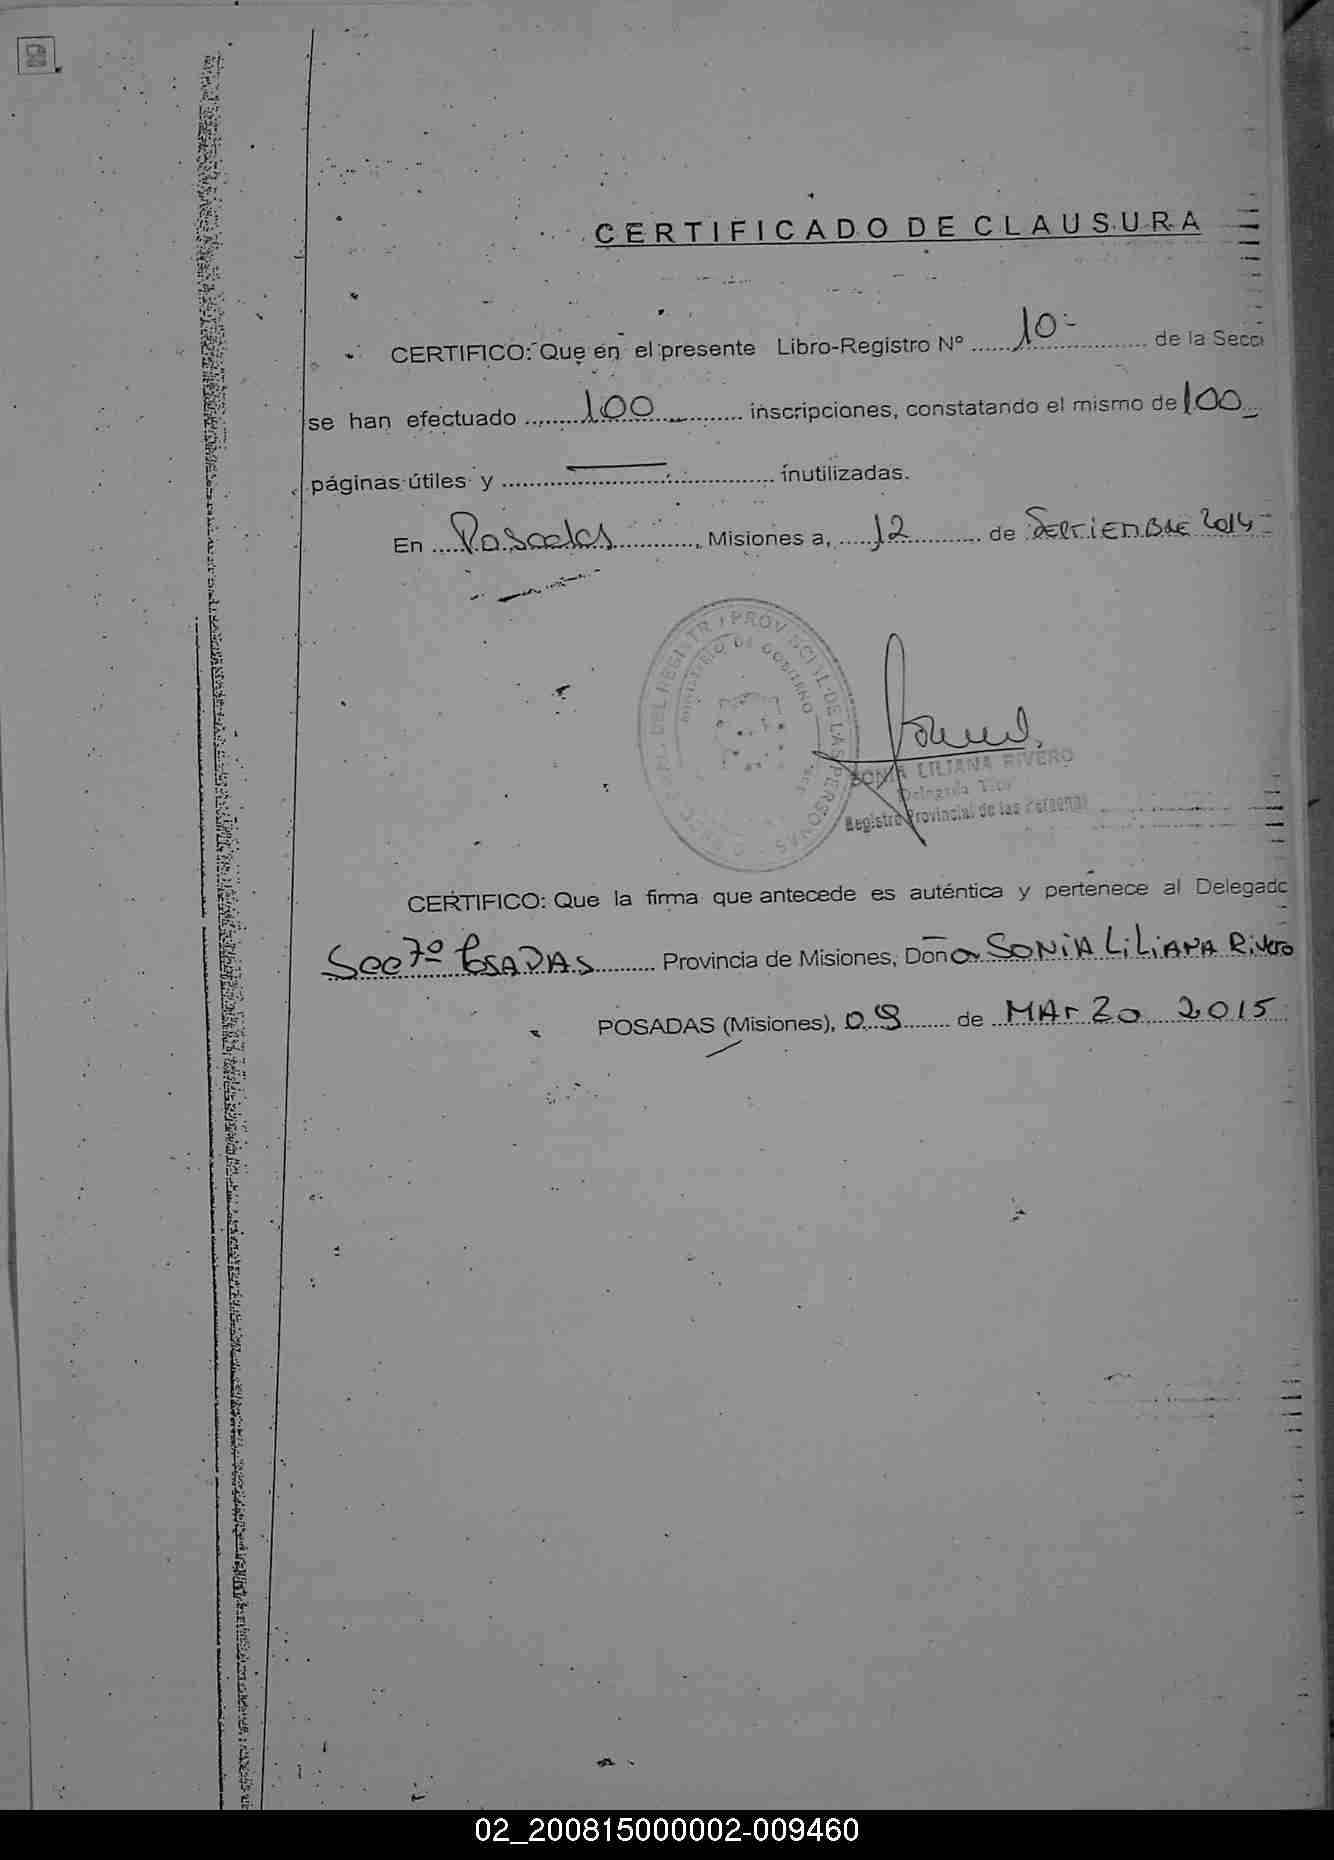 CERTIFICADO DE CLAUSURA
CERTIFICO: Que en el presente Libro-Registro Nº 10.- de la Secci
se han efectuado 100 inscripciones, constatando el mismo de 100
páginas útiles y ——— inutilizadas.
En Posadas, Misiones a, 12 de SEPTIEMBRE 2014
MINISTERIO DE GOBIERNO
SONIA LILIANA RIVERO
Delegada
Registro Provincial de las Personas
CERTIFICO: Que la firma que antecede es auténtica y pertenece al Delegado
Sec 7º POSADAS Provincia de Misiones, Doña SONIA LILIANA RIVERO
POSADAS (Misiones), 09 de MARZO 2015
02_200815000002-009460